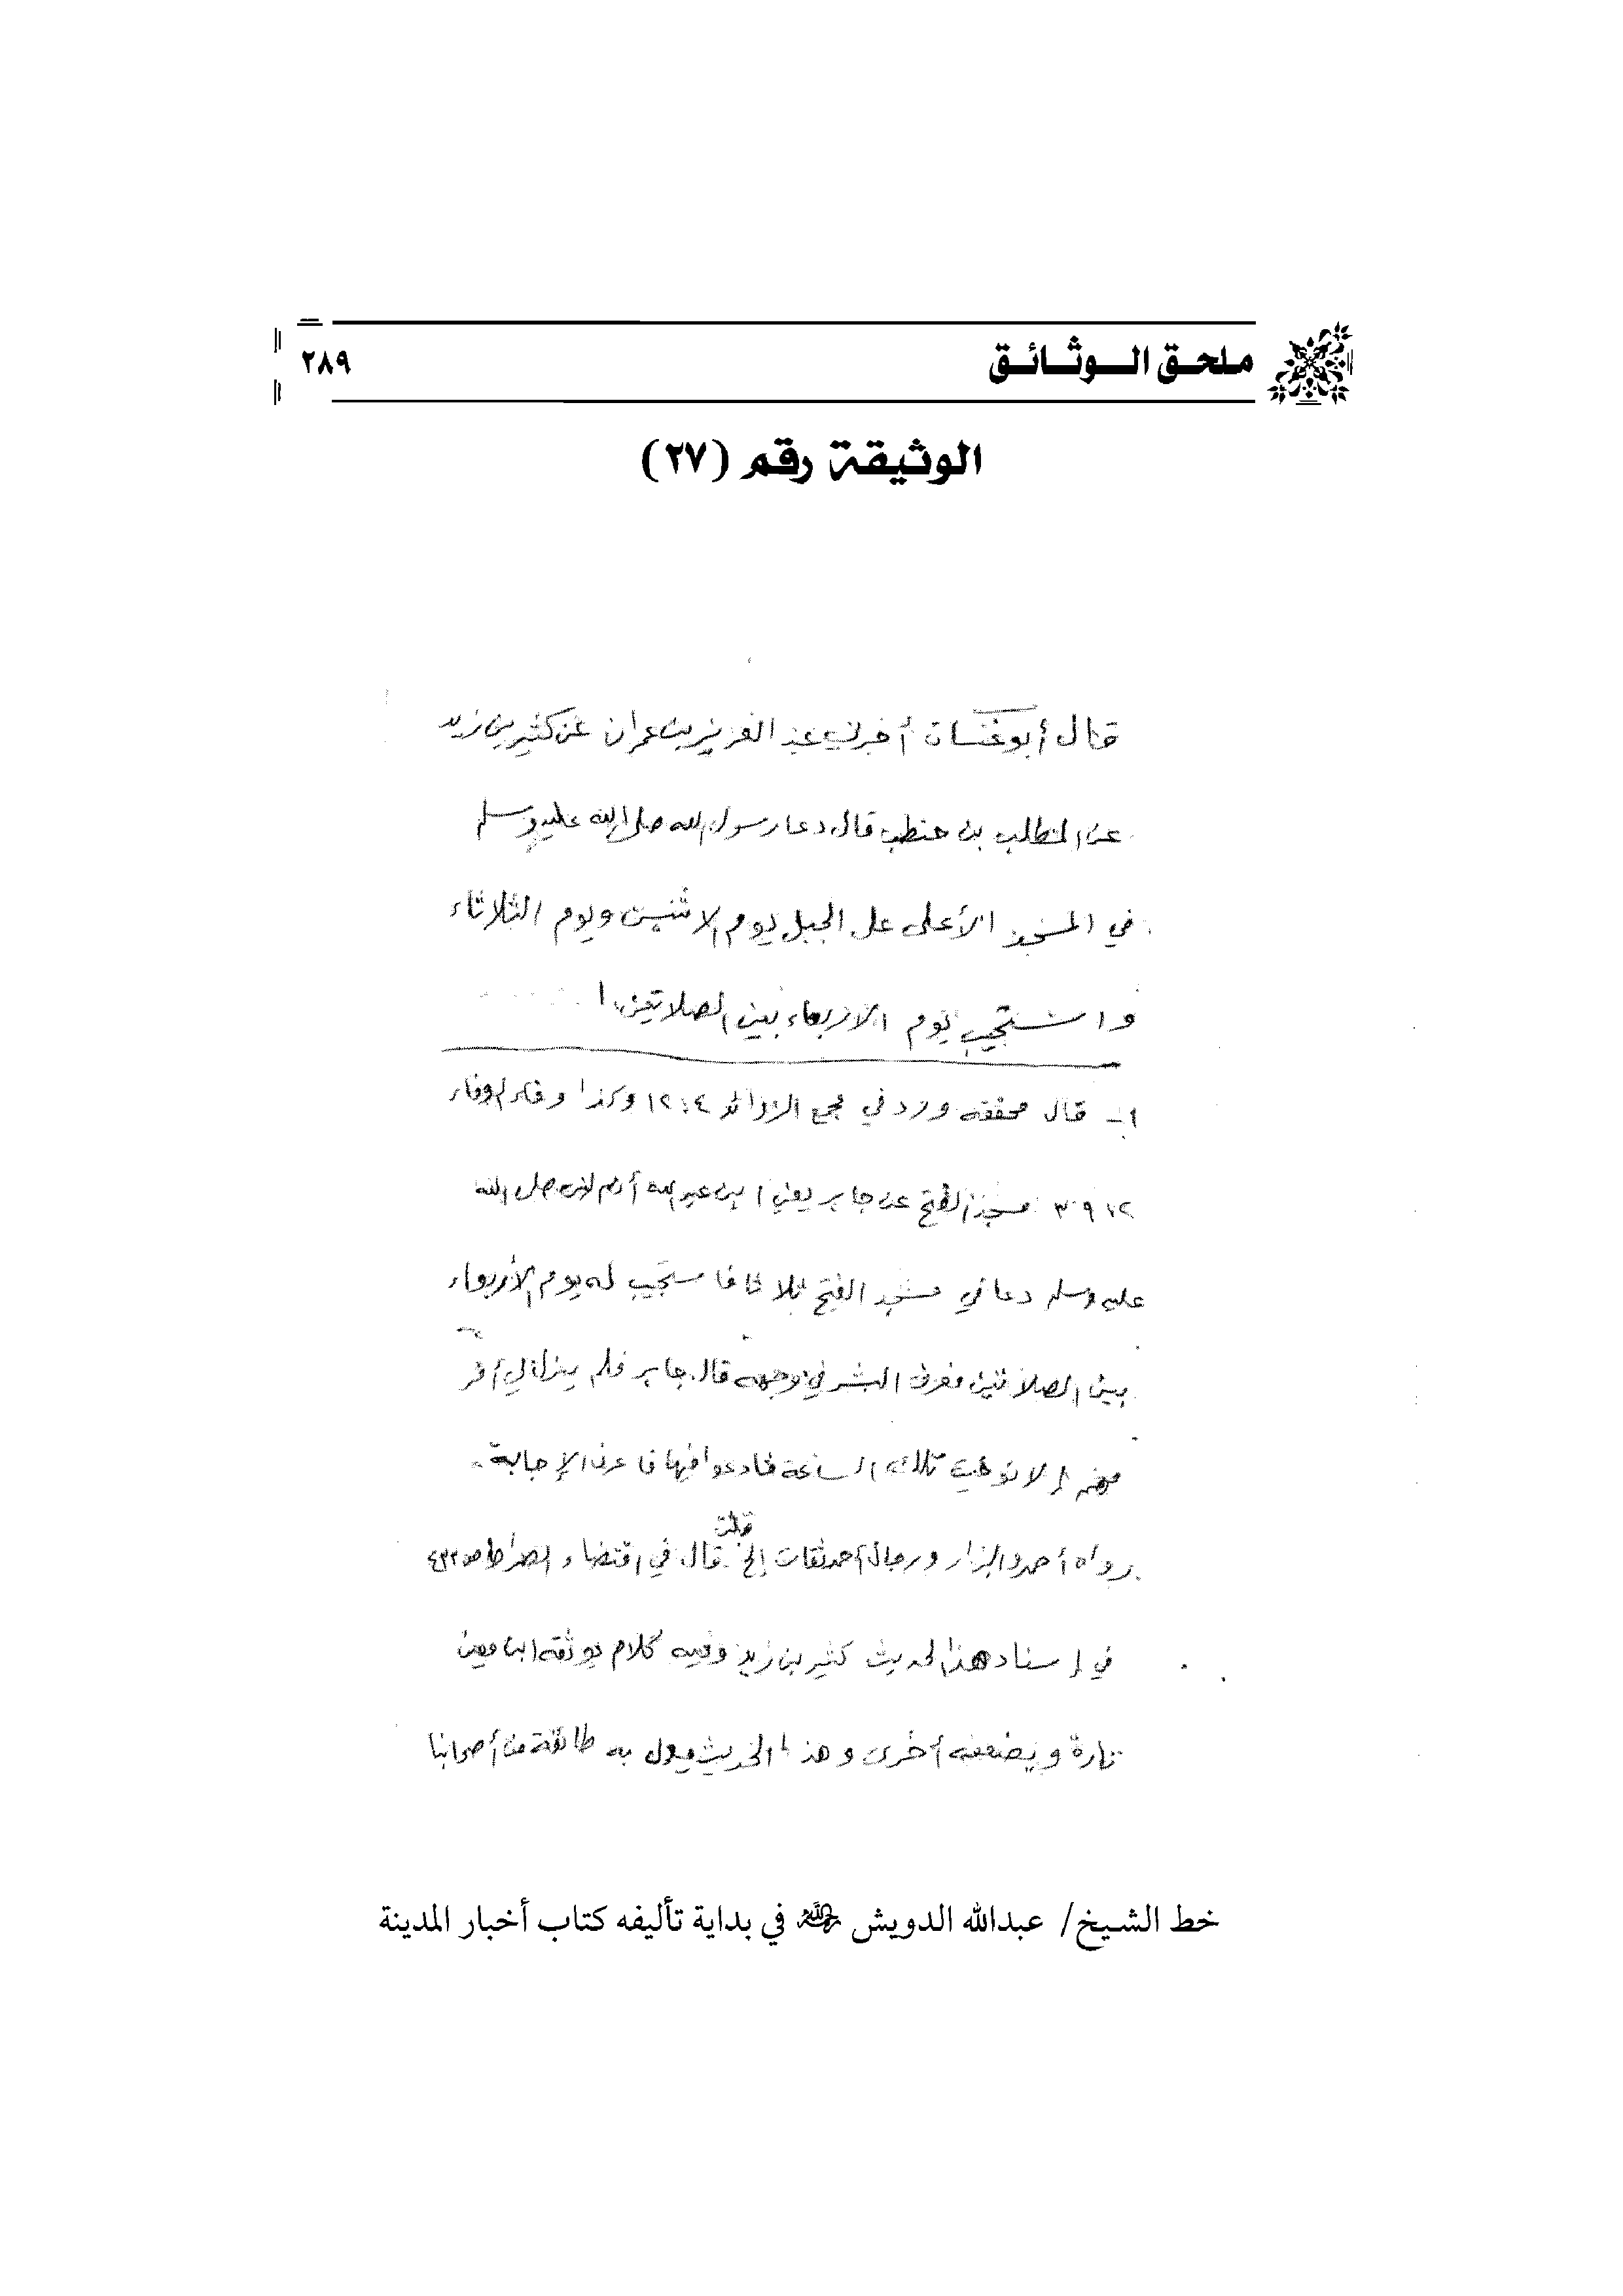 ملحق الوثائق
٢٨٩
الوثيقة رقم (٢٧)
قال أبو غسان أخبرني عبد العزيز بن عمران عن كثير بن زيد
عن المطلب بن حنطب قال دعا رسول الله صلى الله عليه وسلم
في المسجد الأعلى على الجبل يوم الاثنين ويوم الثلاثاء
واستجيب يوم الاربعاء بين الصلاتين ١
١- قال محققه ورد في مجمع الزوائد ١٢:٤ وكذا وفاء الوفاء
مسجد الفتح عن جابر يعني ابن عبد الله أن النبي صلى الله
عليه وسلم دعا في مسجد الفتح ثلاثا فاستجيب له يوم الأربعاء
بين الصلاتين فعرف البشر في وجهه قال جابر فلم ينزل بي أمر
مهم إلا توخيت تلك الساعة فادعوا فيها فاعرف الإجابة
رواه أحمد والبزار ورجال أحمد ثقات إلخ قلت قال في اقتضاء الصراط ص٤٣٢
في إسناد هذا الحديث كثير بن زيد وفيه كلام يوثقه ابن معين
تارة ويضعفه أخرى وهذا الحديث يعمل به طائفة من أصحابنا
خط الشيخ/ عبدالله الدويش رحمه الله في بداية تأليفه كتاب أخبار المدينة